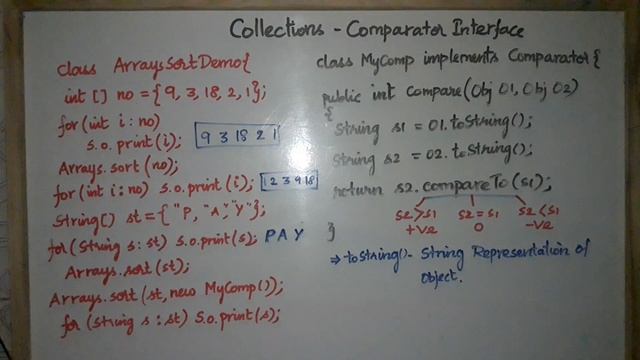 Collections - Comparator Interface
class ArraysSortDemo{
int [] no = {9, 3, 18, 2, 1};
for (int i: no)
S.o. print(i);
9 3 18 2 1
Arrays.sort (no);
for (int i: no) S.o. print(i);
1 2 3 9 18
String[] st = {"P, "A", "Y"};
for (String s: st) S.o. print(s);
P A Y
Arrays.sort (st);
Arrays.sort (st, new MyComp());
for (String s : st) S.o. print(s);
class MyComp implements Comparator{
public int Compare(Obj O1, Obj O2)
{
String s1 = O1. toString();
String s2 = O2. toString();
return s2. compareTo (s1);
s2>s1 s2=s1 s2<s1
+ve 0 -ve
}
⇒ toString()- String Representation of
Object.